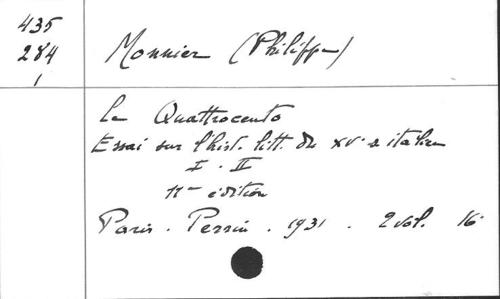 435
284
1
Monnier (Philippe)
Le Quattrocento
Essai sur l'hist. litt. du XVe s italien
I - II
11me édition
Paris. Perrin. 1931. 2 vol. 16°